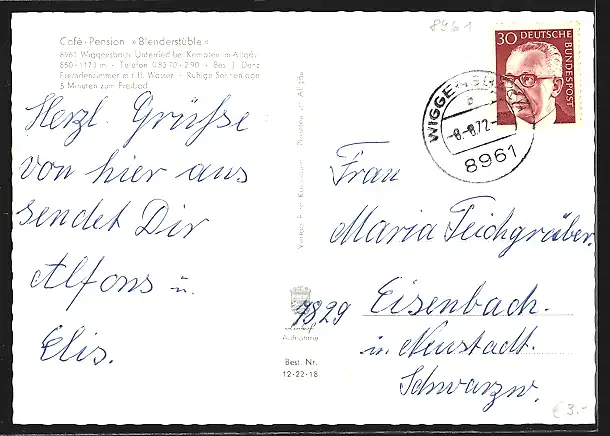 Café-Pension »Blenderstüble«
8961 Wiggensbach Unterried bei Kempten im Allgäu
850-1173 m - Telefon 08370-290 - Bes. J. Denz
Fremdenzimmer mit fl. Wasser - Ruhige Sonnenlage
5 Minuten zum Freibad
Herzl. Grüße
von hier aus
sendet Dir
Alfons u.
Elis.
Aufnahme
Best. Nr.
12-22-18
8961
30 DEUTSCHE
BUNDESPOST
-8.-8.72-
8961
Frau
Maria Teichgräber.
7829 Eisenbach.
in Neustadt.
Schwarzw.
€ 3.-